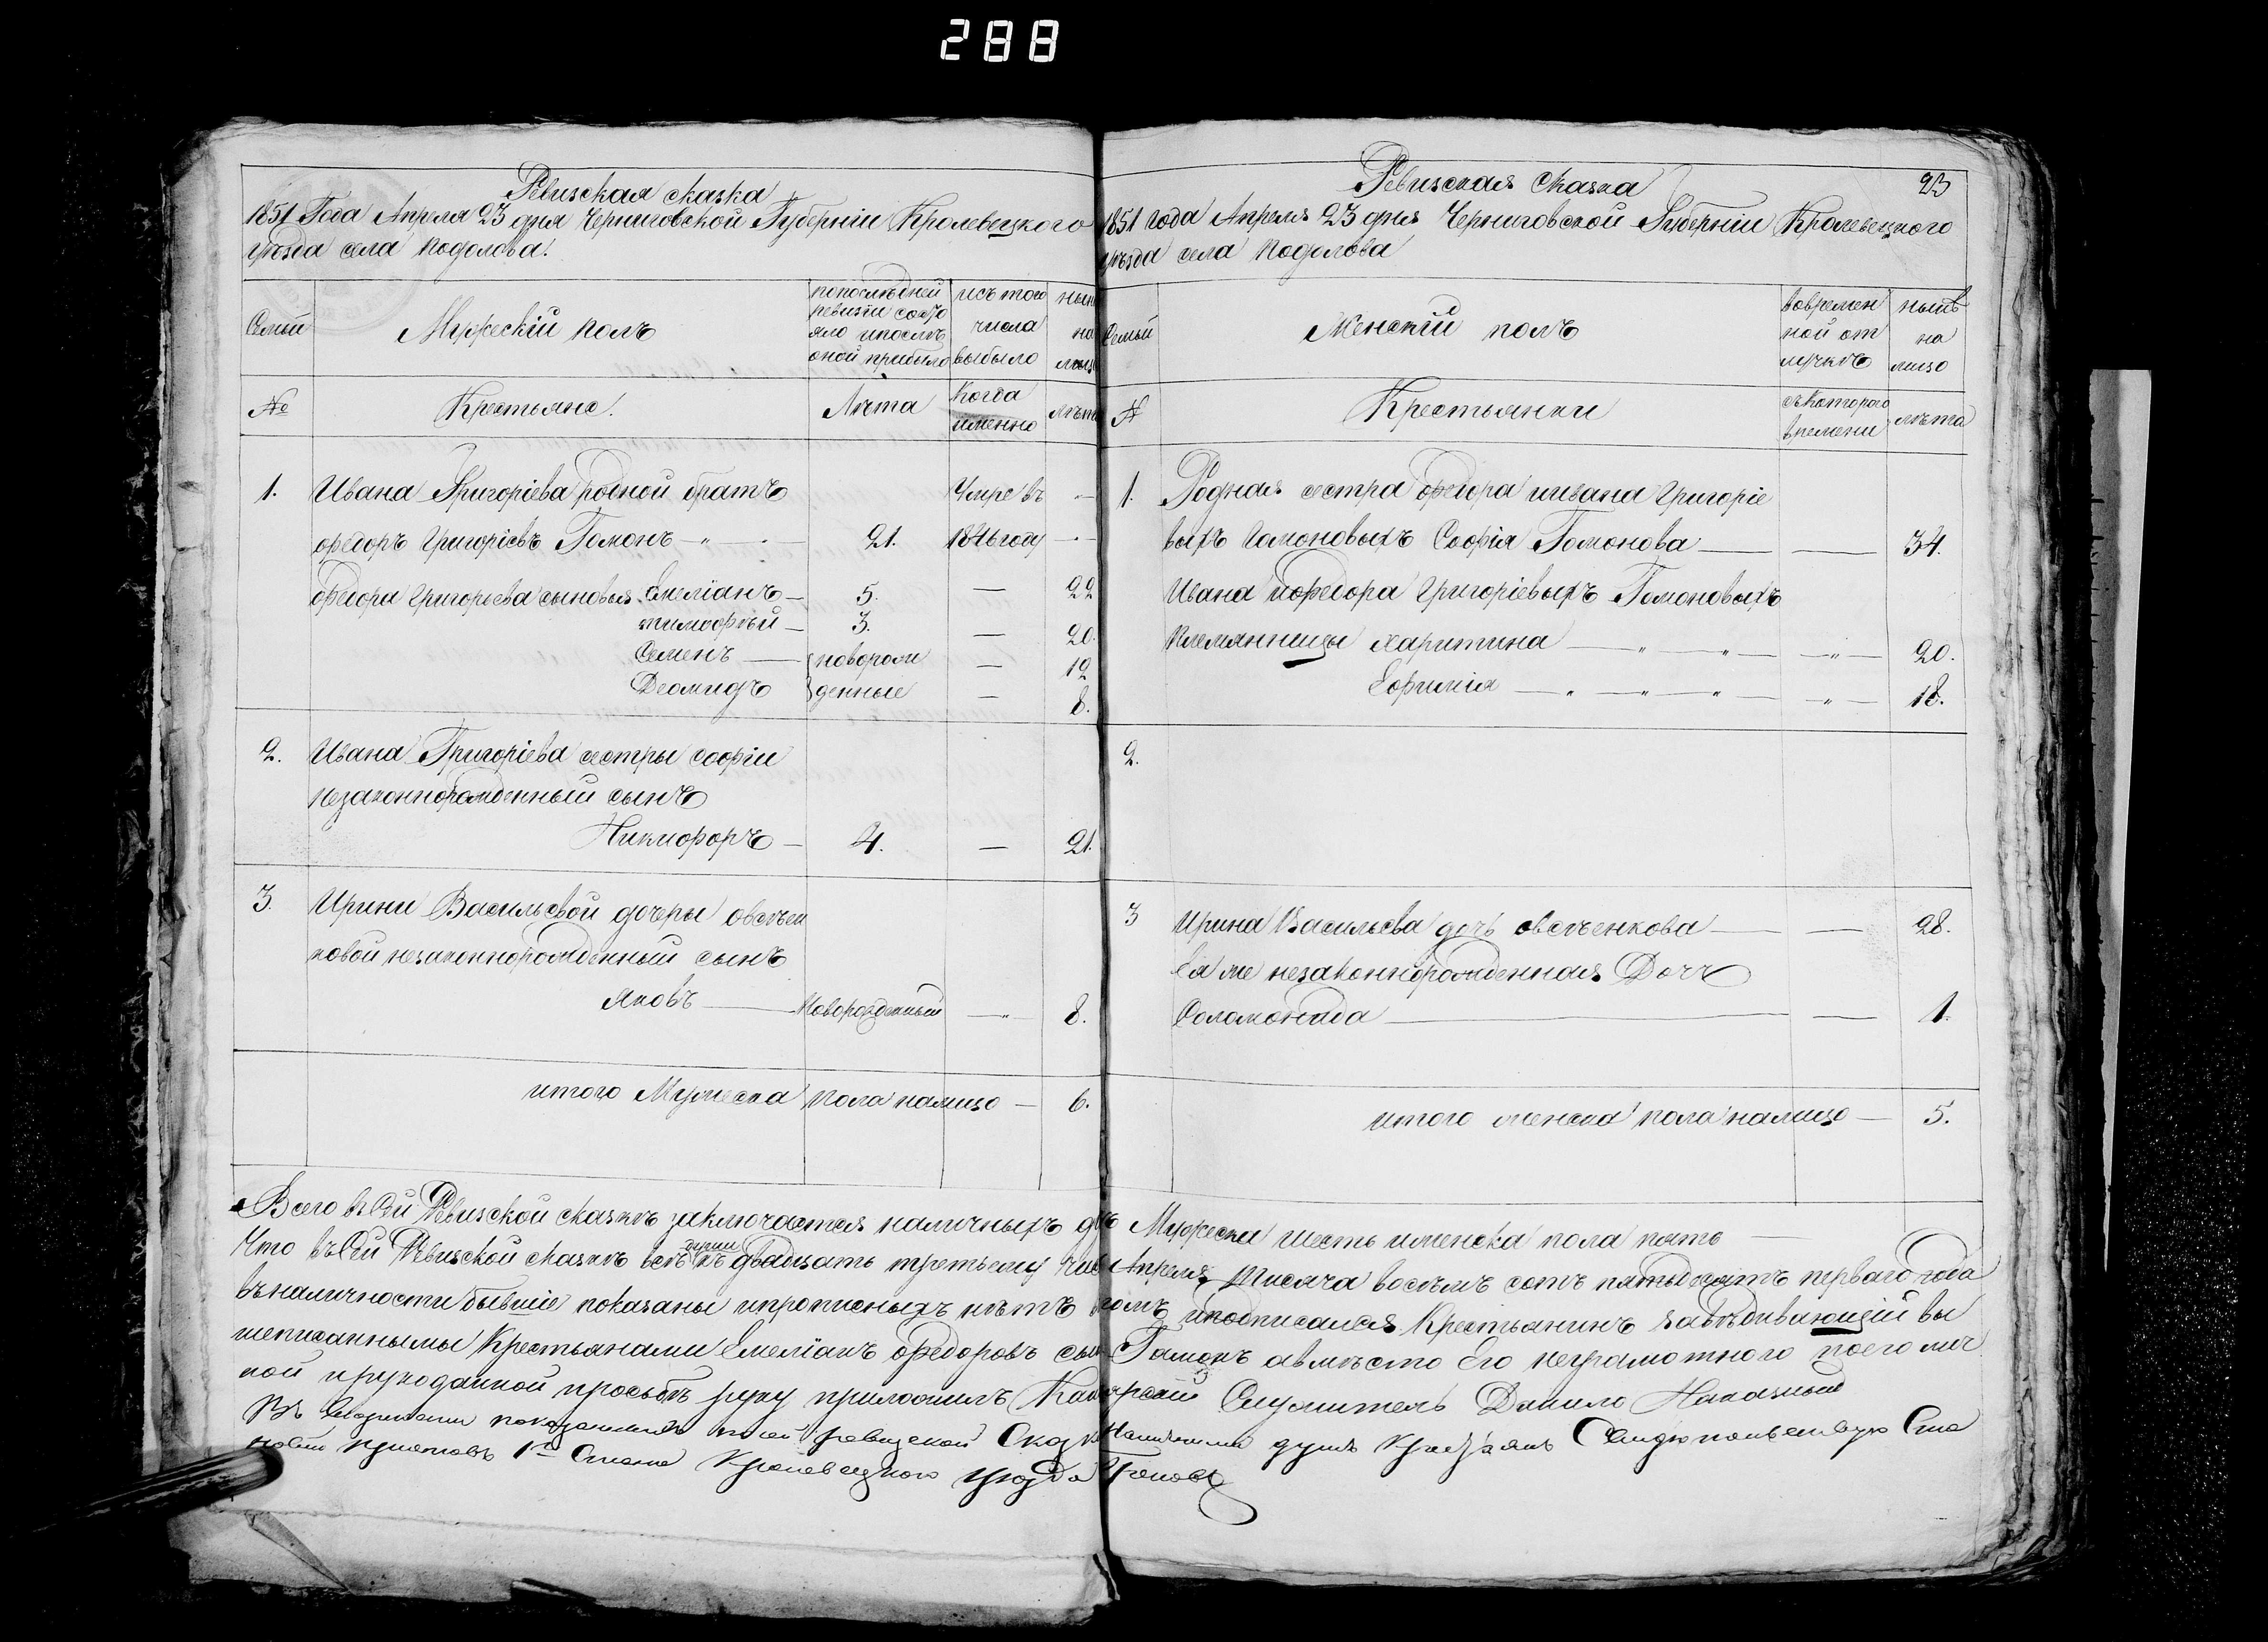 288
Ревизская сказка
1851 Года Апреля 23 дня Черниговской Губерніи Кролевецкого
уезда села Подолова.
Семьи
Мужескій полъ
попоследней
ревизіи состо
яло ипослѣ
оной прибыло
исъ того
числа
выбыло
№
Крестьяне.
Лѣта
Когда
именно
1. Ивана Григоріева родной братъ Умре въ
Федоръ Григоріевъ Гомонъ 21. 1846 году
Федора Григорьева сыновья Емеліанъ 5. — 22
тимофѣй 3. — 20.
Семенъ новорож — 12
Деомидъ денные — 8.
2. Ивана Григоріева сестры Софіи
незаконнорожденный сынъ
Никифоръ — 4. — 21.
3. Ирини Васильевой дочеры овсѣен
ковой незаконнорожденный сынъ
Яковъ — Новорожденный — 8.
итого Мужеска пола налицо — 6.
Ревизская Сказка
23
1851 года Апреля 23 дня Черниговской Губерніи Кролевецкого
уѣзда села Подолова
Семьи
Женскій полъ
вовремен
ной от
лучкѣ
нынѣ
на
лицо
№
Крестьянки
съкоторого
времени
лѣта
1. Родная сестра Федора иивана Григоріе
выхъ Гомоновыхъ Софія Гомонова — — 34.
Ивана иФедора Григоріевыхъ Гомоновыхъ
племянницы харитина — 20.
Ефимія — 18.
2.
3 Ирина Васильева дочь овсѣенкова — — 28.
Ея же незаконнорожденная Дочъ
Соломонида — — 1.
итого женска пола налицо — 5.
Всего въ Сей Ревизской сказкѣ заключается наличныхъ Мужеска шесть иженска пола пять
Что въСей Ревизской сказкѣ всѣ души къ двадцать третьему Апреля Тисяча восемъ сотъ пятьдесятъ первого года
въналичности бывшіе показаны ипрописныхъ нѣтъ иподписался Крестьянинъ Завѣдивающій вы
шеписанными Крестьянами Емеліанъ Федоровъ сынъ Гамонъ авмѣсто Его неграмотного поеголич
ной ирукоданной просьбѣ руку приложилъ Служитель Данило
показанныхъ ревизской душъ
приставъ 1го Стана Кролевецкого уезда